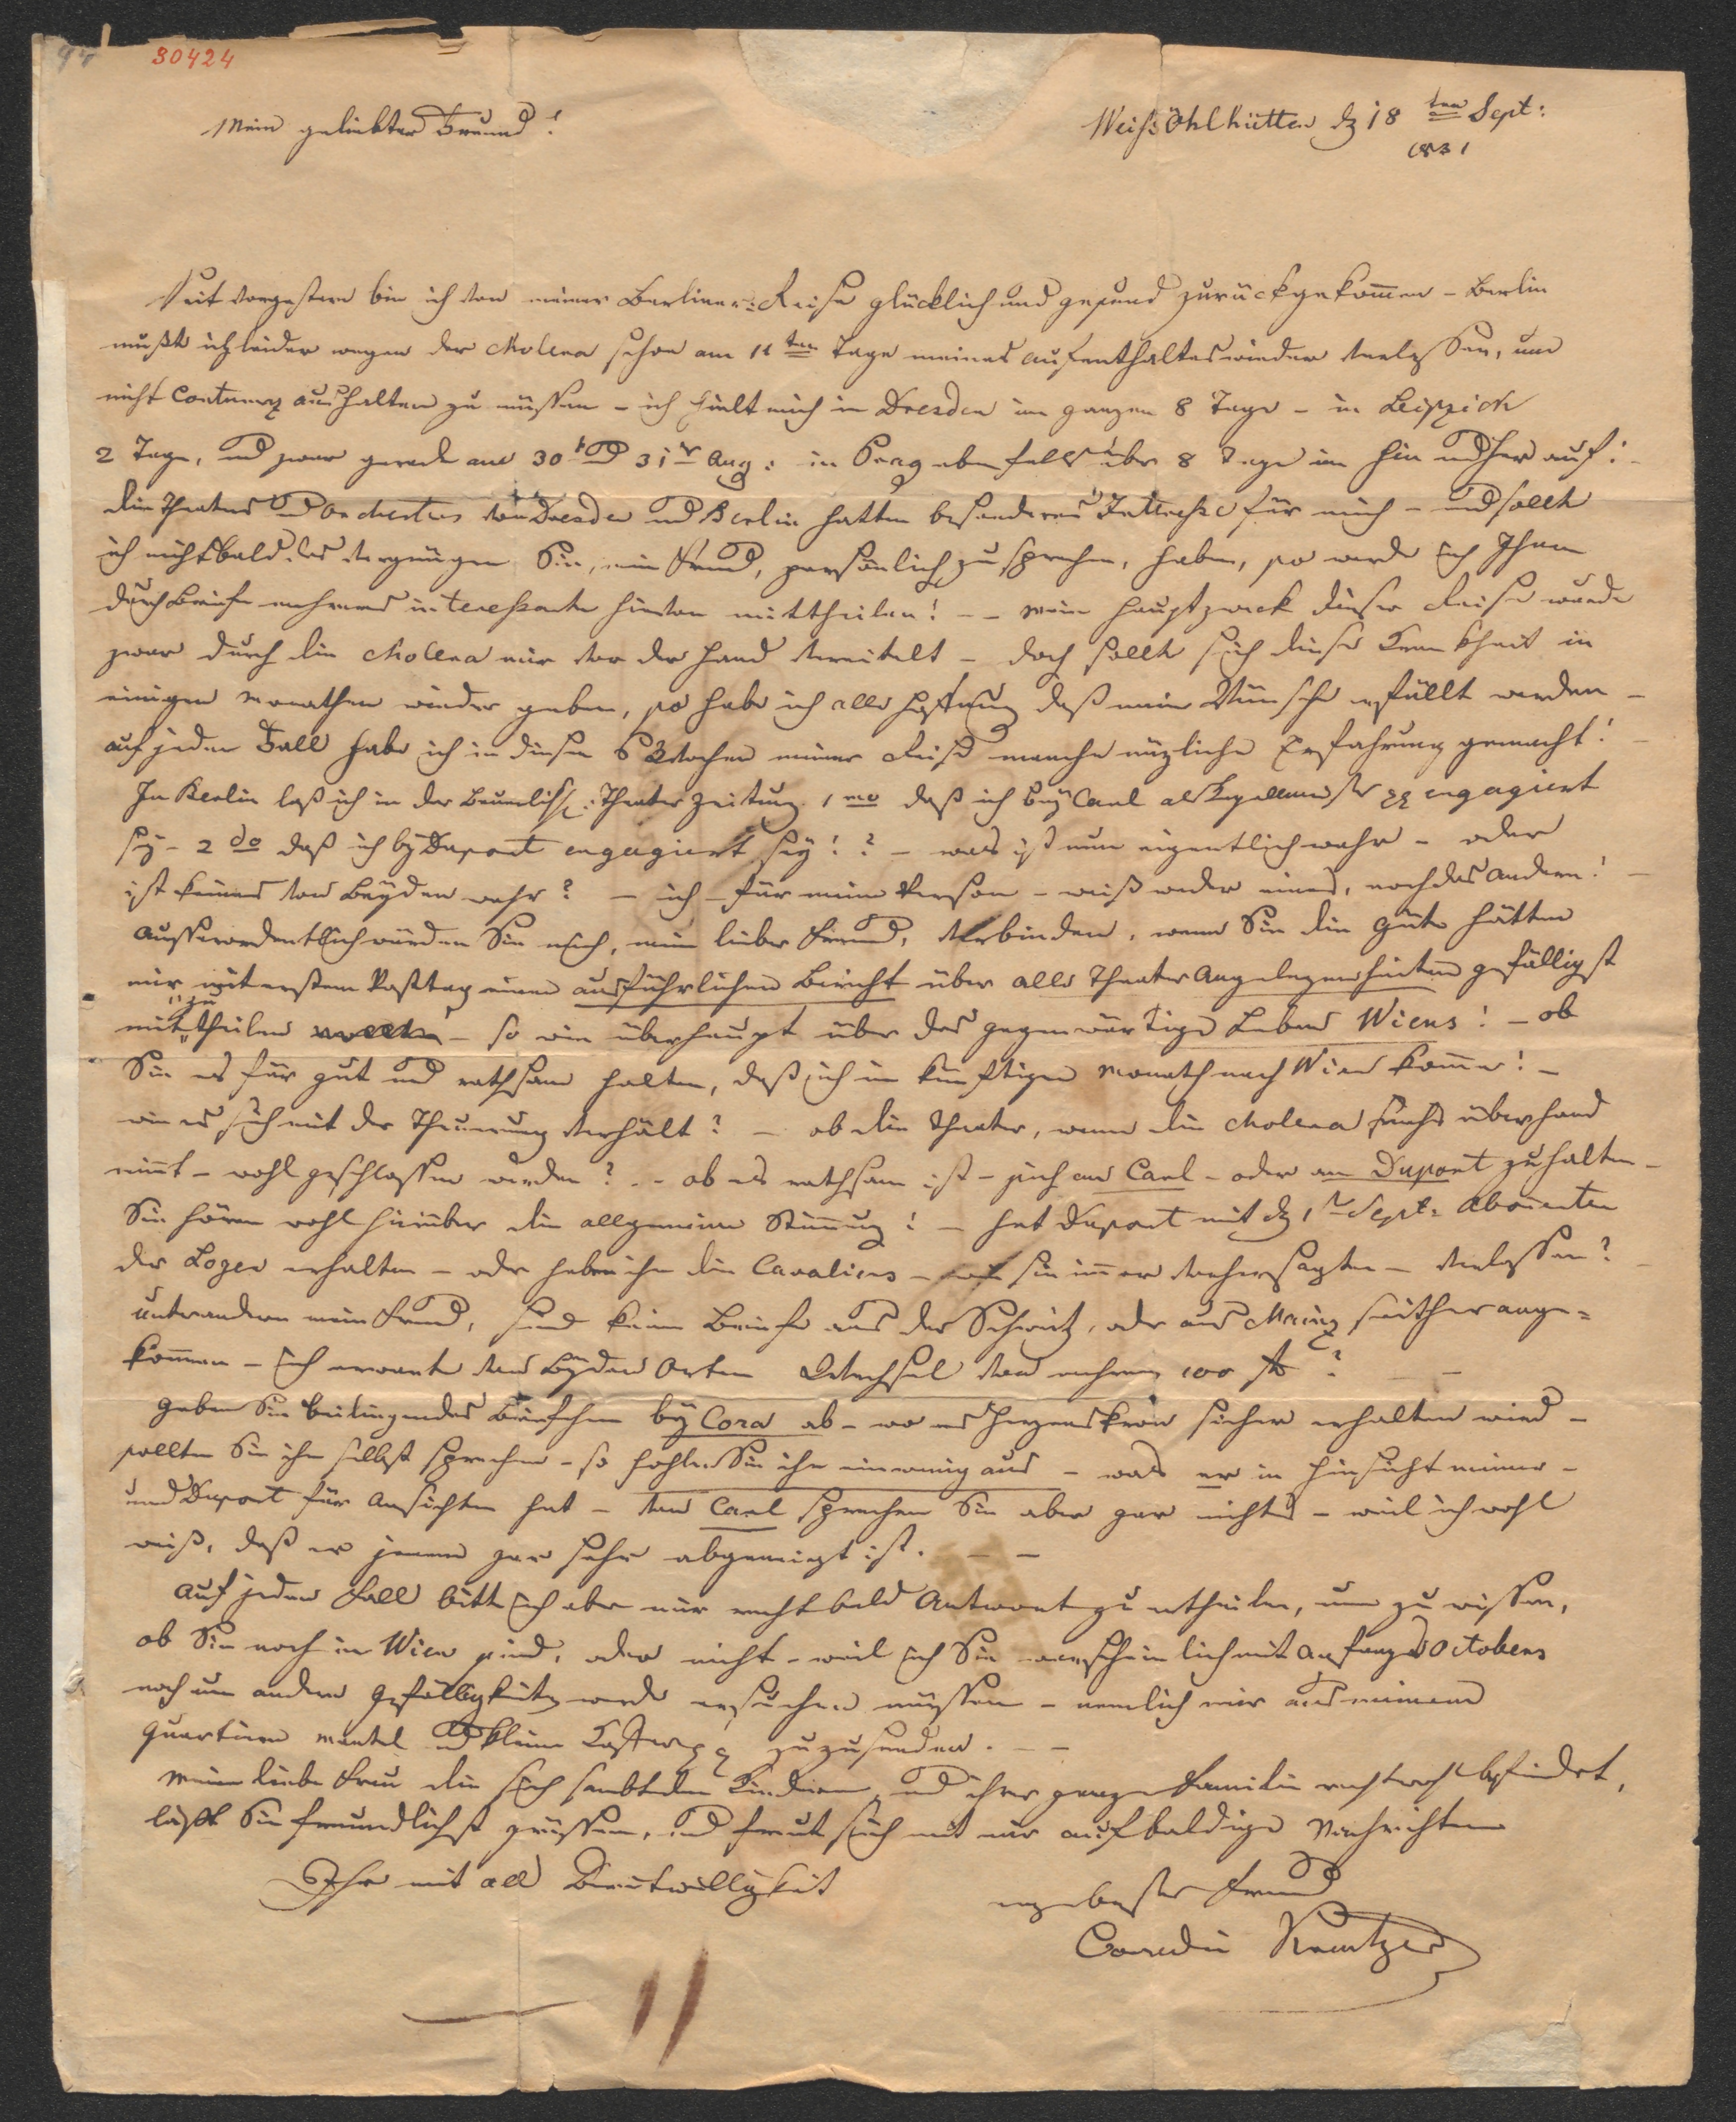 30424
Mein geliebter Freund!
Weiß Öhlhütten dz 18ten Sept:
1831
Seit vorgestern bin ich von meiner Berliner-Reise glücklich und gesund zurückgekommen - Berlin
mußte ich leider wegen der Cholera schon am 11ten Tage meines Aufenthaltes wieder verlassen, um
nicht Contumaz aushalten zu müssen - ich hielt mich in Dresden im ganzen 8 Tage - in Leipzich
2 Tage, und zwar gerade am 30t und 31r Aug: in Prag ebenfalls über 8 Tage im hin und her auf: -
die Theater und Orchester von Dresden und Berlin hatten besonderes Interesse für mich - und sollte
ich nicht bald das Vergnügen Sie, mein Freund, persönlich zu sprechen, haben, so werde ich Ihnen
durch Briefe mehreres interessante hievon mittheilen! - - Mein Hauptzweck dieser Reise wurde
zwar durch die Cholera mir vor der Hand vereitelt - doch sollte sich diese Krankheit in
einigen Monathen wieder geben, so habe ich alle Hoffnung daß mein Wünsche erfüllt werden -
auf jeden Fall habe ich in diesen 6 Wochen meiner Reise manche nüzliche Erfahrung gemacht! -
In Berlin las ich in der Bäuerlischen Theater Zeitung. 1mo daß ich bey Carl als Kapellmeister engagiert
sey - 2do daß ich bey Duport engagiert sey!? - was ist nun eigentlich wahr - oder
ist keines von Beyden wahr? - ich - für meine Person - weiß weder eines, noch das andere! -
Ausserordentlich würden Sie mich, mein lieber Freund, verbinden, wenn Sie die Güte hätten
mir mit erstem Posttag einen ausführlichen Bericht über alle Theater Angelegenheiten gefälligst
mitzutheilen - so wie überhaupt über das gegenwärtige Leben Wiens! - ob
Sie es für gut und rathsam halten, daß ich im künftigen Monath nach Wien komme! -
wie es sich mit der Theuerung verhält? - ob die Theater, wenn die Cholera überhand
nimt - wohl geschlossen werden? - - ob es rathsam ist - sich an Carl - oder an Duport zu halten -
Sie hören wohl hierüber die allgemeine Stimmung! - hat Duport mit dz 1r Sept: Abonenten
der Logen erhalten - oder haben ihn die Cavaliers - wie sie immer vorher sagten - verlassen? -
unter andern mein Freund, sind keine Briefe aus der Schweitz, oder aus Mainz seither ange=
kommen - ich erwarte von beyden Orten Wechsel von mehrern 100 f? - -
Geben Sie beiliegendes Briefchen bey Cora ab - wo es Herzenskron sicher erhalten wird -
sollten Sie ihn selbst sprechen - so hohlen Sie ihn ein wenig aus - was er in Hinsicht meiner -
und Duport für Ansichten hat - von Carl sprechen Sie aber gar nichts - weil ich wohl
weiß, daß er jenem gar sehr abgeneigt ist. - -
Auf jeden Fall bitte ich aber mir recht bald Antwort zu ertheilen, um zu wissen,
ob Sie noch in Wien sind, oder nicht - weil ich Sie warscheinlich mit Anfangs Octobers
noch um andere Gefälligkeiten werde ersuchen müssen - nemlich mir aus meinem
Quartiere Mantel und kleine Koffer zuzusenden. - -
Meine liebe Frau die sich sambt den Kindern, und ihrer ganzen Familie recht wohl befindet,
läßt Sie freundlichst grüssen, und freut sich mit mir auf baldige Nachrichten
Ihr mit all Bereitwilligkeit
ergebenster Freund
Conradin Kreutzer
11